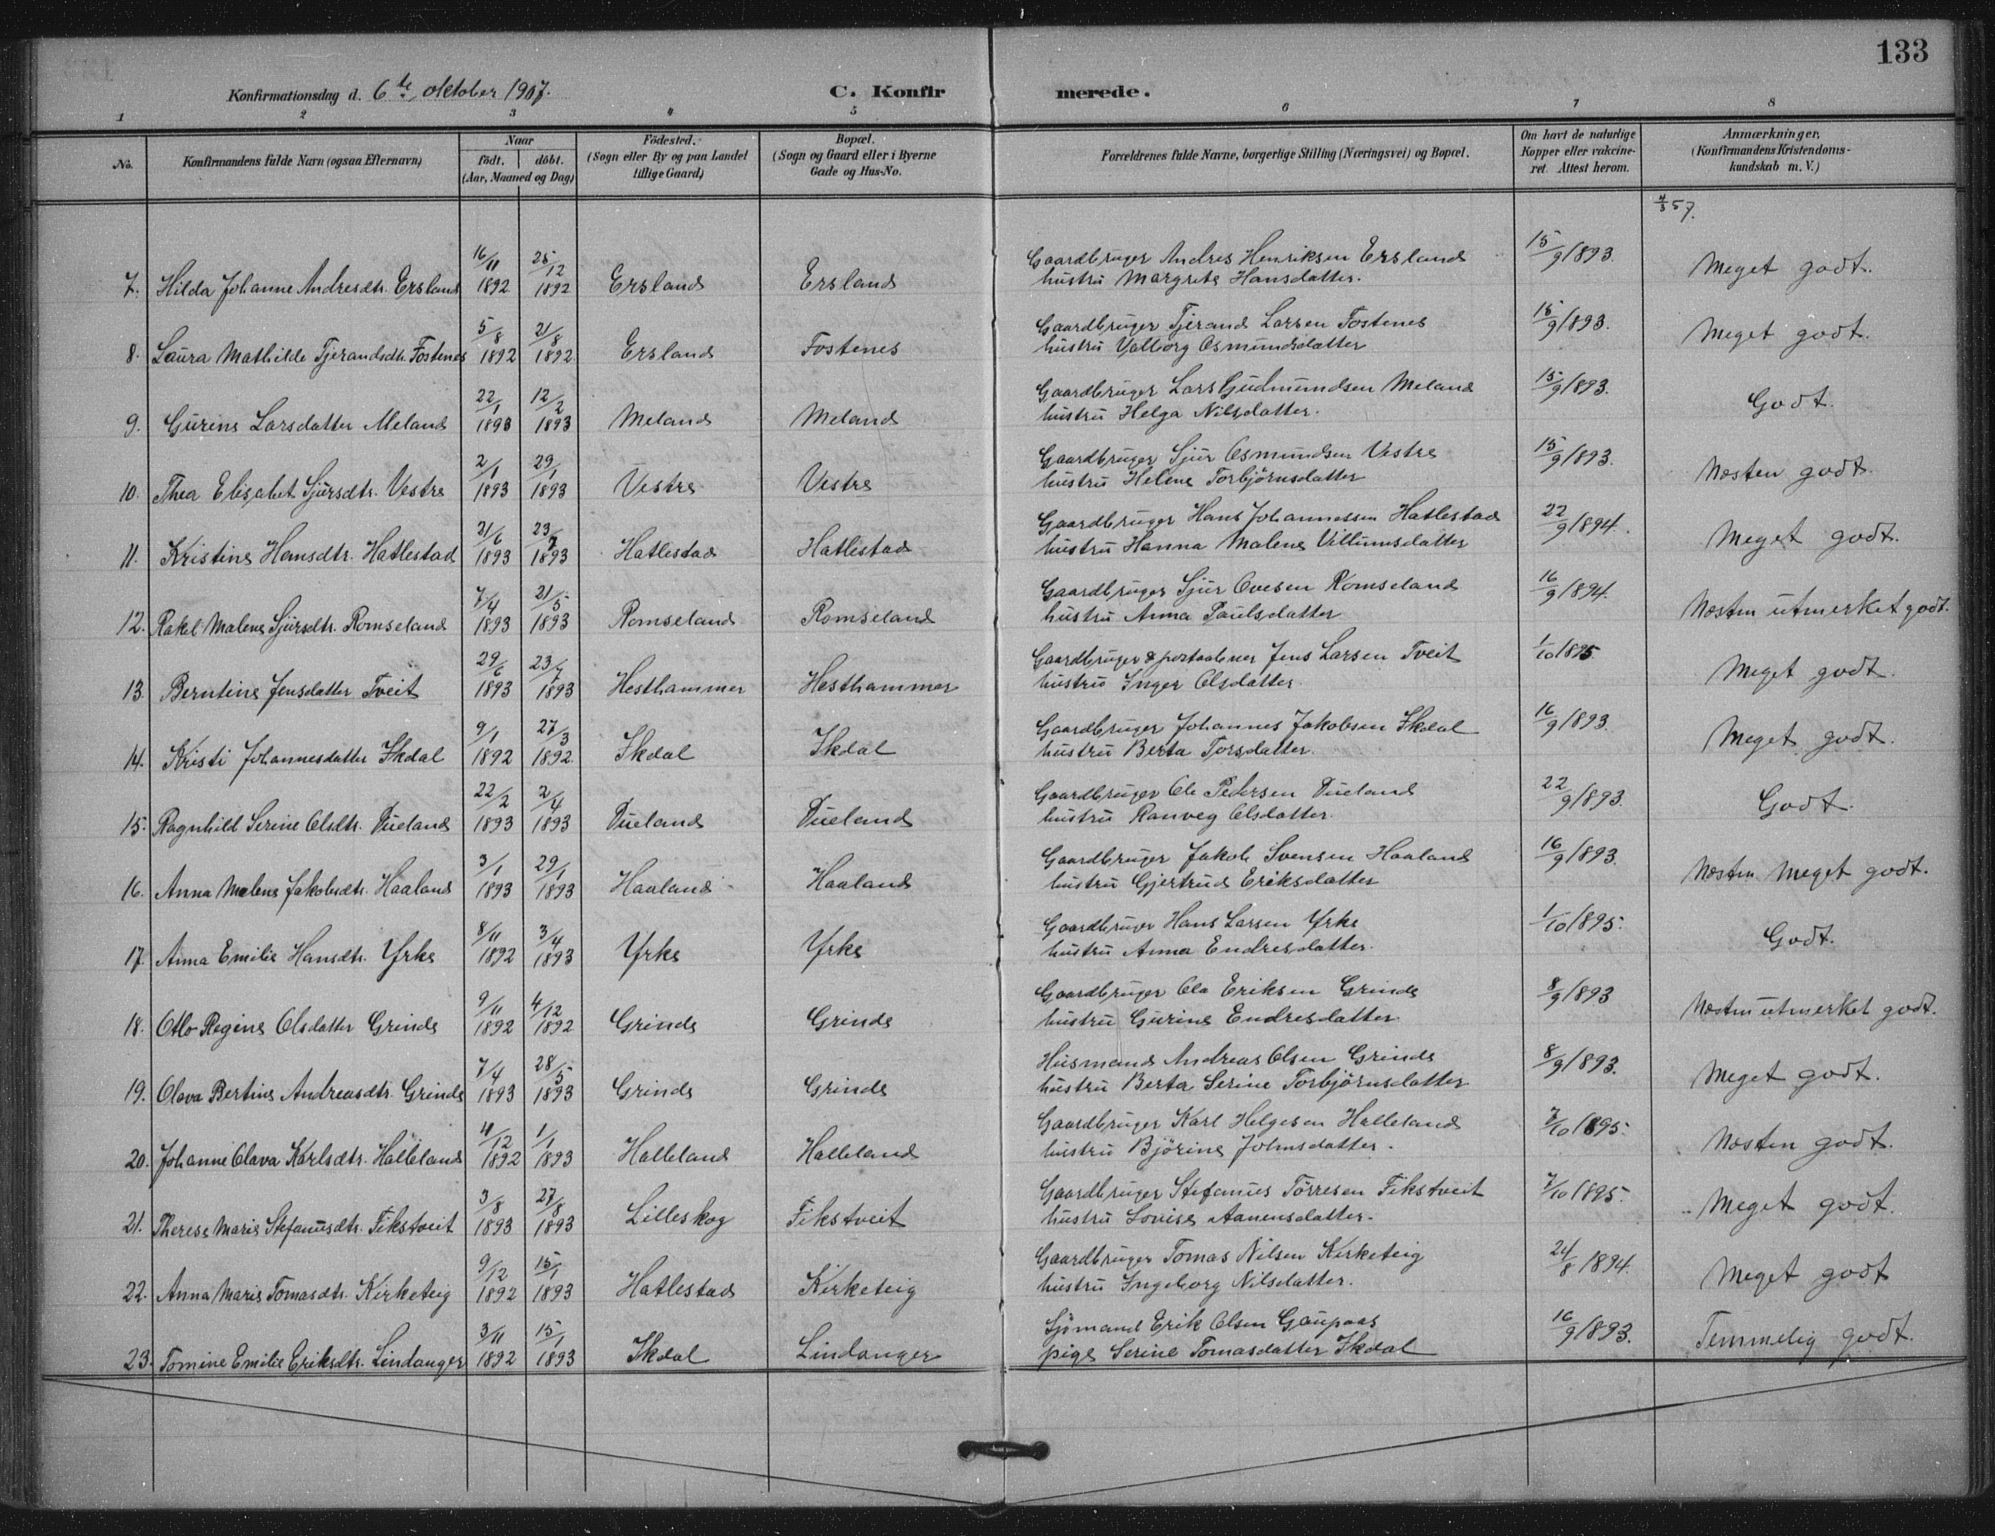 133
Konfirmationsdag d. 6te oktober 1907.
C. Konfirmerede.
1 2 3 4 5 6 7 8
No.
Konfirmandens fulde Navn (ogsaa Efternavn)
Naar
födt. döbt.
(Aar, Maaned og Dag)
Födested.
(Sogn eller By og paa Landet
tillige Gaard)
Bopæl.
(Sogn og Gaard eller i Byerne
Gade og Hus-No.
Forældrenes fulde Navne, borgerlige Stilling (Næringsvei) og Bopæl.
Om havt de naturlige
Kopper eller vakcine-
ret. Attest herom.
Anmærkninger,
(Konfirmandens Kristendoms-
kundskab m. V.)
4/3 57.
7. Hilda Johanne Andresdtr. Ersland 16/11 1892 25/12 1892 Ersland Ersland Gaardbruger Andres Henriksen Ersland 15/9 1893. Meget godt.
hustru Margrete Hansdatter.
8. Laura Mathilde Tjerandsdtr. Fostenes 5/8 1892 21/8 1892 Ersland Fostenes Gaardbruger Tjerand Larsen Fostenes 15/9 1893. Meget godt.
hustru Valborg Osmundsdatter
9. Gurine Larsdatter Meland 22/1 1893 12/2 1893 Meland Meland Gaardbruger Lars Gudmundsen Meland 15/9 1893. Godt.
hustru Helga Nilsdatter.
10. Thea Elisabet Sjursdtr. Vestre 2/1 1893 29/1 1893 Vestre Vestre Gaardbruger Sjur Osmundsen Vestre 15/9 1893. Næsten godt.
hustru Helene Torbjörnsdatter
11. Kristine Hansdtr. Hatlestad 21/6 1893 23/7 1893 Hatlestad Hatlestad Gaardbruger Hans Johannessen Hatlestad 22/9 1894. Meget godt.
hustru Hanna Malene Villumsdatter
12. Rakel Malene Sjursdtr. Romseland 7/4 1893 21/5 1893 Romseland Romseland Gaardbruger Sjur Ovesen Romseland 16/9 1894. Næsten utmerket godt.
hustru Anna Paulsdatter
13. Berntine Jensdatter Tveit 29/6 1893 23/7 1893 Hesthammer Hesthammer Gaardbruger & postaabner Jens Larsen Tveit 1/10 1895 Meget godt.
hustru Inger Olsdatter.
14. Kristi Johannesdatter Skdal 9/1 1892 27/3 1892. Skdal Skdal Gaardbruger Johannes Jakobsen Skdal 16/9 1893. Meget godt.
hustru Berta Torsdatter.
15. Ragnhild Serine Olsdtr. Dueland 22/2 1893 2/4 1893 Dueland Dueland Gaardbruger Ole Pedersen Dueland 22/9 1893. Godt.
hustru Ranveg Olsdatter.
16. Anna Malene Jakobsdtr. Haaland 3/1 1893 29/1 1893 Haaland Haaland Gaardbruger Jakob Svensen Haaland 16/9 1893. Næsten meget godt.
hustru Gjertrud Eriksdatter
17. Anna Emilie Hansdtr. Yrke 8/11 1892 3/4 1893 Yrke Yrke Gaardbruger Hans Larsen Yrke 1/10 1895. Godt.
hustru Anna Endresdatter.
18. Otto Regine Olsdatter Grinde 9/11 1892 4/12 1892 Grinde Grinde Gaardbruger Ola Eriksen Grinde 8/9 1893 Næsten utmerket godt.
hustru Gurine Endresdatter.
19. Olava Bertine Andreasdtr. Grinde 7/4 1893 28/5 1893 Grinde Grinde Husmand Andreas Olsen Grinde 8/9 1893. Meget godt.
hustru Berta Serine Torbjörnsdatter
20. Johanne Olava Karlsdtr. Halleland 4/12 1892 1/1 1893 Halleland Halleland Gaardbruger Karl Helgesen Halleland 7/10 1895. Næsten godt.
hustru Björine Johnsdatter.
21. Therese Marie Stefanusdtr. Fikstveit 3/8 1893 27/8 1893 Lilleskog Fikstveit Gaardbruger Stefanus Törresen Fikstveit 7/10 1895. Meget godt.
hustru Lovise Aanensdatter.
22. Anna Marie Tomasdtr. Kirketeig 9/12 1892 15/1 1893 Hatlestad Kirketeig Gaardbruger Tomas Nilsen Kirketeig 24/8 1894. Meget godt
hustru Ingeborg Nilsdatter.
23. Tomine Emilie Eriksdtr. Lindanger 3/11 1892 15/1 1893 Skdal Lindanger Sjömand Erik Olsen Gaupaas 16/9 1893. Temmelig godt.
pige Serine Tomasdatter Skdal